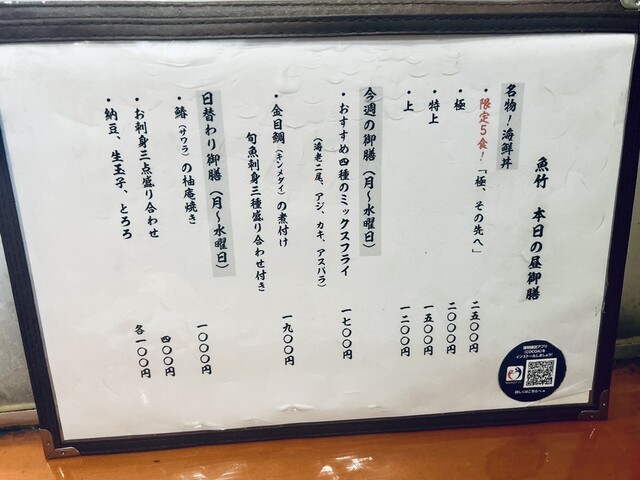 魚竹 本日の昼御膳
名物！海鮮丼
・限定5食！「極、その先へ」 二五〇〇円
・極 二〇〇〇円
・特上 一五〇〇円
・上 一二〇〇円
今週の御膳（月～水曜日）
・おすすめ四種のミックスフライ 一七〇〇円
（海老二尾、アジ、カキ、アスパラ）
・金目鯛（キンメダイ）の煮付け 一九〇〇円
旬魚刺身三種盛り合わせ付き
日替わり御膳（月～水曜日）
・鰆（サワラ）の柚庵焼き 一〇〇〇円
・お刺身三点盛り合わせ 四〇〇円
・納豆、生玉子、とろろ 各一〇〇円
接触確認アプリ
(COCOA)を
インストールしましょう!
詳しくはこちらへ